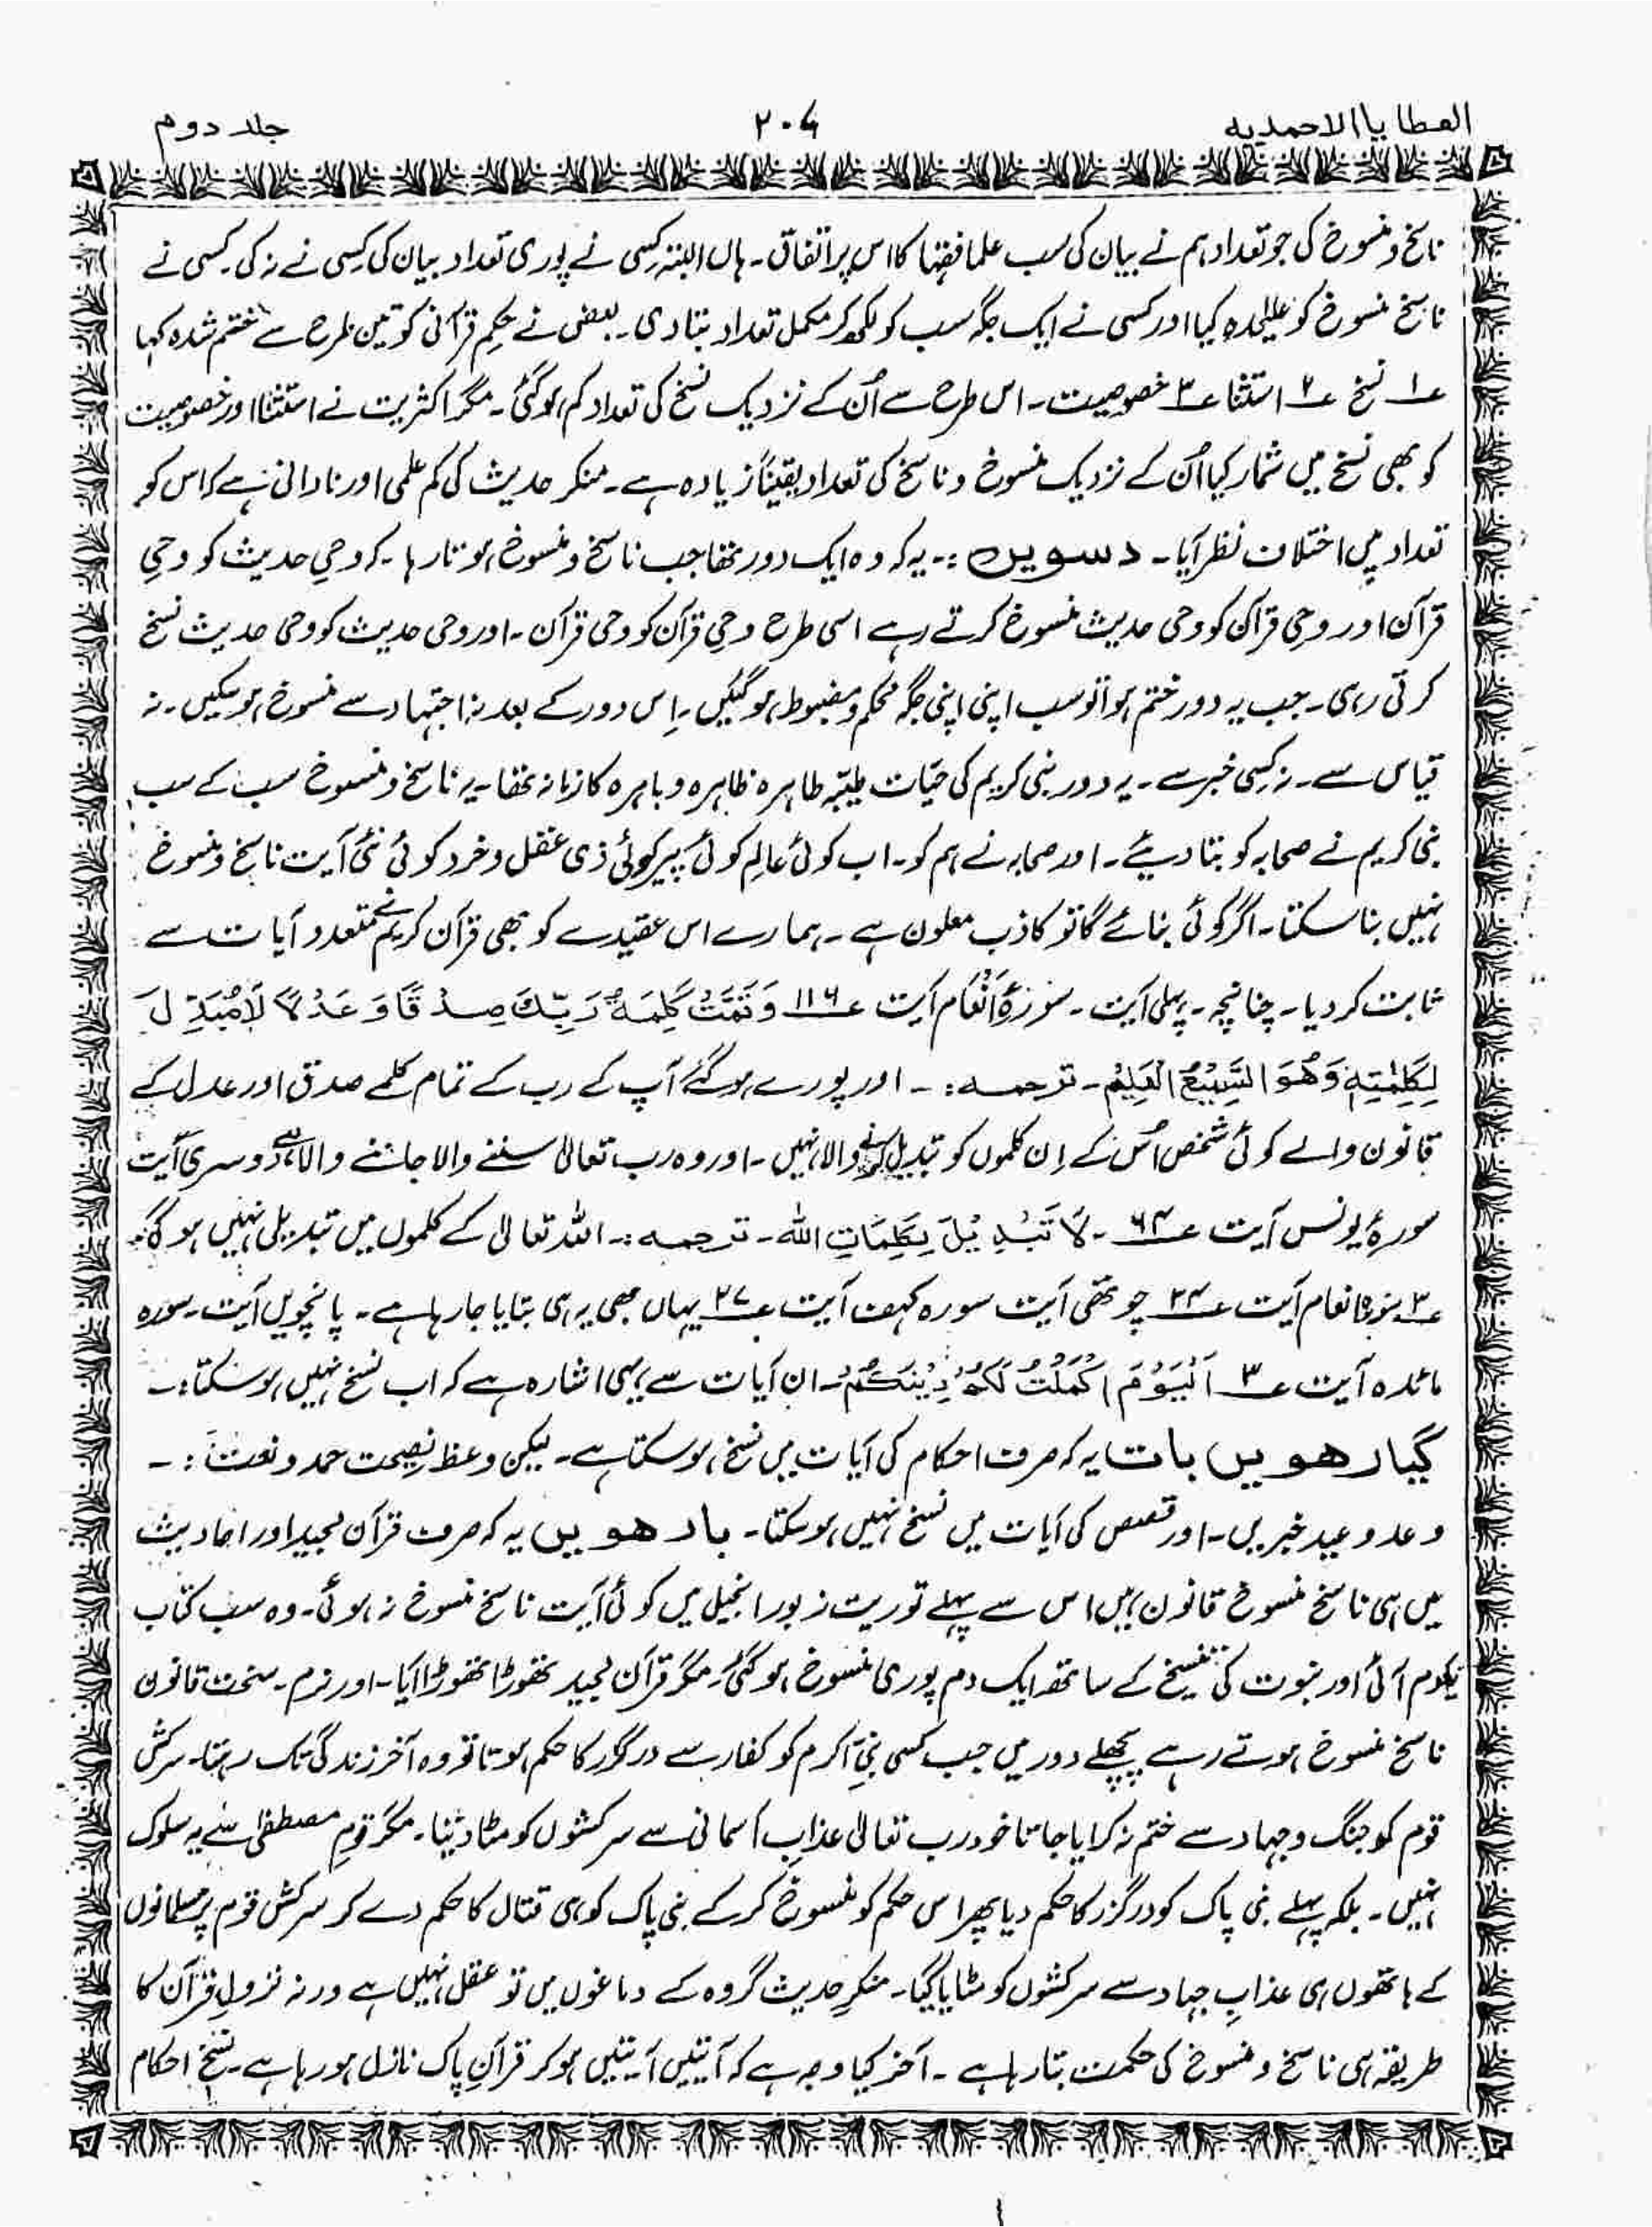 العطایا الاحمدیہ ۲۰۶ جلد دوم
ناسخ و منسوخ کی جو تعداد ہم نے بیان کی سب علما فقہا کا اس پر اتفاق۔ ہاں البتہ کسی نے پوری تعداد بیان کی کسی نے نہ کی کسی نے
ناسخ منسوخ کو علیٰحدہ کیا اور کسی نے ایک جگہ سب کو لکھ کر مکمل تعداد بتا دی۔ بعض نے حکمِ قرآنی کو تین طرح سے ختم شدہ کہا
؏۱ نسخ ؏۲ استثنا ؏۳ خصوصیت۔ اس طرح سے اُن کے نزدیک نسخ کی تعداد کم ہو گئی۔ مگر اکثریت نے استثنا اور خصوصیت
کو بھی نسخ میں شمار کیا اُن کے نزدیک منسوخ و ناسخ کی تعداد یقیناً زیادہ ہے۔ منکر حدیث کی کم علمی اور نادانی ہے کہ اس کو
تعداد میں اختلاف نظر آیا۔ دسویں :۔ یہ کہ وہ ایک دور تھا جب ناسخ و منسوخ ہوتا رہا۔ کہ وحیِ حدیث کو وحیِ
قرآن اور وحیِ قرآن کو وحی حدیث منسوخ کرتے رہے اسی طرح وحیِ قرآن کو وحی قرآن۔ اور وحی حدیث کو وحی حدیث نسخ
کرتی رہی۔ جب یہ دور ختم ہوا تو سب اپنی اپنی جگہ محکم و مضبوط ہو گئیں۔ اِس دور کے بعد نہ اجتہاد سے منسوخ ہو سکیں۔ نہ
قیاس سے۔ نہ کسی خبر سے۔ یہ دور نبی کریم کی حیات طیّبہ طاہرہ ظاہرہ و باہرہ کا زمانہ تھا۔ یہ ناسخ و منسوخ سب کے سب
نبی کریم نے صحابہ کو بتا دیئے۔ اور صحابہ نے ہم کو۔ اب کوئی عالِم کوئی پیر کوئی ذی عقل و خرد کوئی نئی آیت ناسخ و منسوخ
نہیں بنا سکتا۔ اگر کوئی بنائے گا تو کاذب ملعون ہے۔ ہمارے اس عقیدے کو بھی قرآن کریم نے متعدد آیات سے
ثابت کر دیا۔ چنانچہ۔ پہلی آیت۔ سورۂ اَنْعام آیت ؏۱۱۶ وَتَمَّتْ كَلِمَةُ رَبِّكَ صِدْقًا وَعَدْلًا لَامُبَدِّلَ
لِكَلِمٰتِهٖ وَهُوَ السَّمِيْعُ الْعَلِيْمُ۔ ترجمہ :۔ اور پورے ہو گئے آپ کے رب کے تمام کلمے صدق اور عدل کے
قانون والے کوئی شخص اُس کے اِن کلموں کو تبدیل کرنے والا نہیں۔ اور وہ رب تعالیٰ سننے والا جاننے والا ہے دوسری آیت
سورۂ یونس آیت ؏۶۴۔ لَا تَبْدِيْلَ لِكَلِمَاتِ اللّٰهِ۔ ترجمہ :۔ اللہ تعالیٰ کے کلموں میں تبدیلی نہیں ہو گی۔
؏۳ سورۂ انعام آیت ؏۳۴ چوتھی آیت سورہ کہف آیت ؏۲۷ یہاں بھی یہ ہی بتایا جا رہا ہے۔ پانچویں آیت۔ سورہ
مائدہ آیت ؏۳ اَلْيَوْمَ اَكْمَلْتُ لَكُمْ دِيْنَكُمْ۔ ان آیات سے یہی اشارہ ہے کہ اب نسخ نہیں ہو سکتا۔
گیارھویں بات یہ کہ صرف احکام کی آیات میں نسخ ہو سکتا ہے۔ لیکن وعظ نصیحت حمد و نعت :۔
وعد و عید خبریں۔ اور قصص کی آیات میں نسخ نہیں ہو سکتا۔ بارھویں یہ کہ صرف قرآن مجید اور احادیث
میں ہی ناسخ منسوخ قانون ہیں اس سے پہلے توریت زبور انجیل میں کوئی آیت ناسخ منسوخ نہ ہوئی۔ وہ سب کتاب
یکدم آئی اور نبوت کی تنسیخ کے ساتھ ایک دم پوری منسوخ ہو گئی۔ مگر قرآن مجید تھوڑا تھوڑا آیا۔ اور نرم۔ سخت قانون
ناسخ منسوخ ہوتے رہے پچھلے دور میں جب کسی نبیِ اکرم کو کفار سے درگزر کا حکم ہوتا تو وہ آخر زندگی تک رہتا۔ سرکش
قوم کو جنگ و جہاد سے ختم نہ کرایا جاتا خود رب تعالیٰ عذابِ آسمانی سے سرکشوں کو مٹا دیتا۔ مگر قومِ مصطفیٰ سے یہ سلوک
نہیں۔ بلکہ پہلے نبی پاک کو درگزر کا حکم دیا پھر اس حکم کو منسوخ کر کے نبی پاک کو ہی قتال کا حکم دے کر سرکش قوم پر مسلمانوں
کے ہاتھوں ہی عذابِ جہاد سے سرکشوں کو مٹایا گیا۔ منکرِ حدیث گروہ کے دماغوں میں تو عقل نہیں ہے ورنہ نزولِ قرآن کا
طریقہ ہی ناسخ و منسوخ کی حکمت بتا رہا ہے۔ آخر کیا وجہ ہے کہ آیتیں آیتیں ہو کر قرآنِ پاک نازل ہو رہا ہے۔ نسخِ احکام